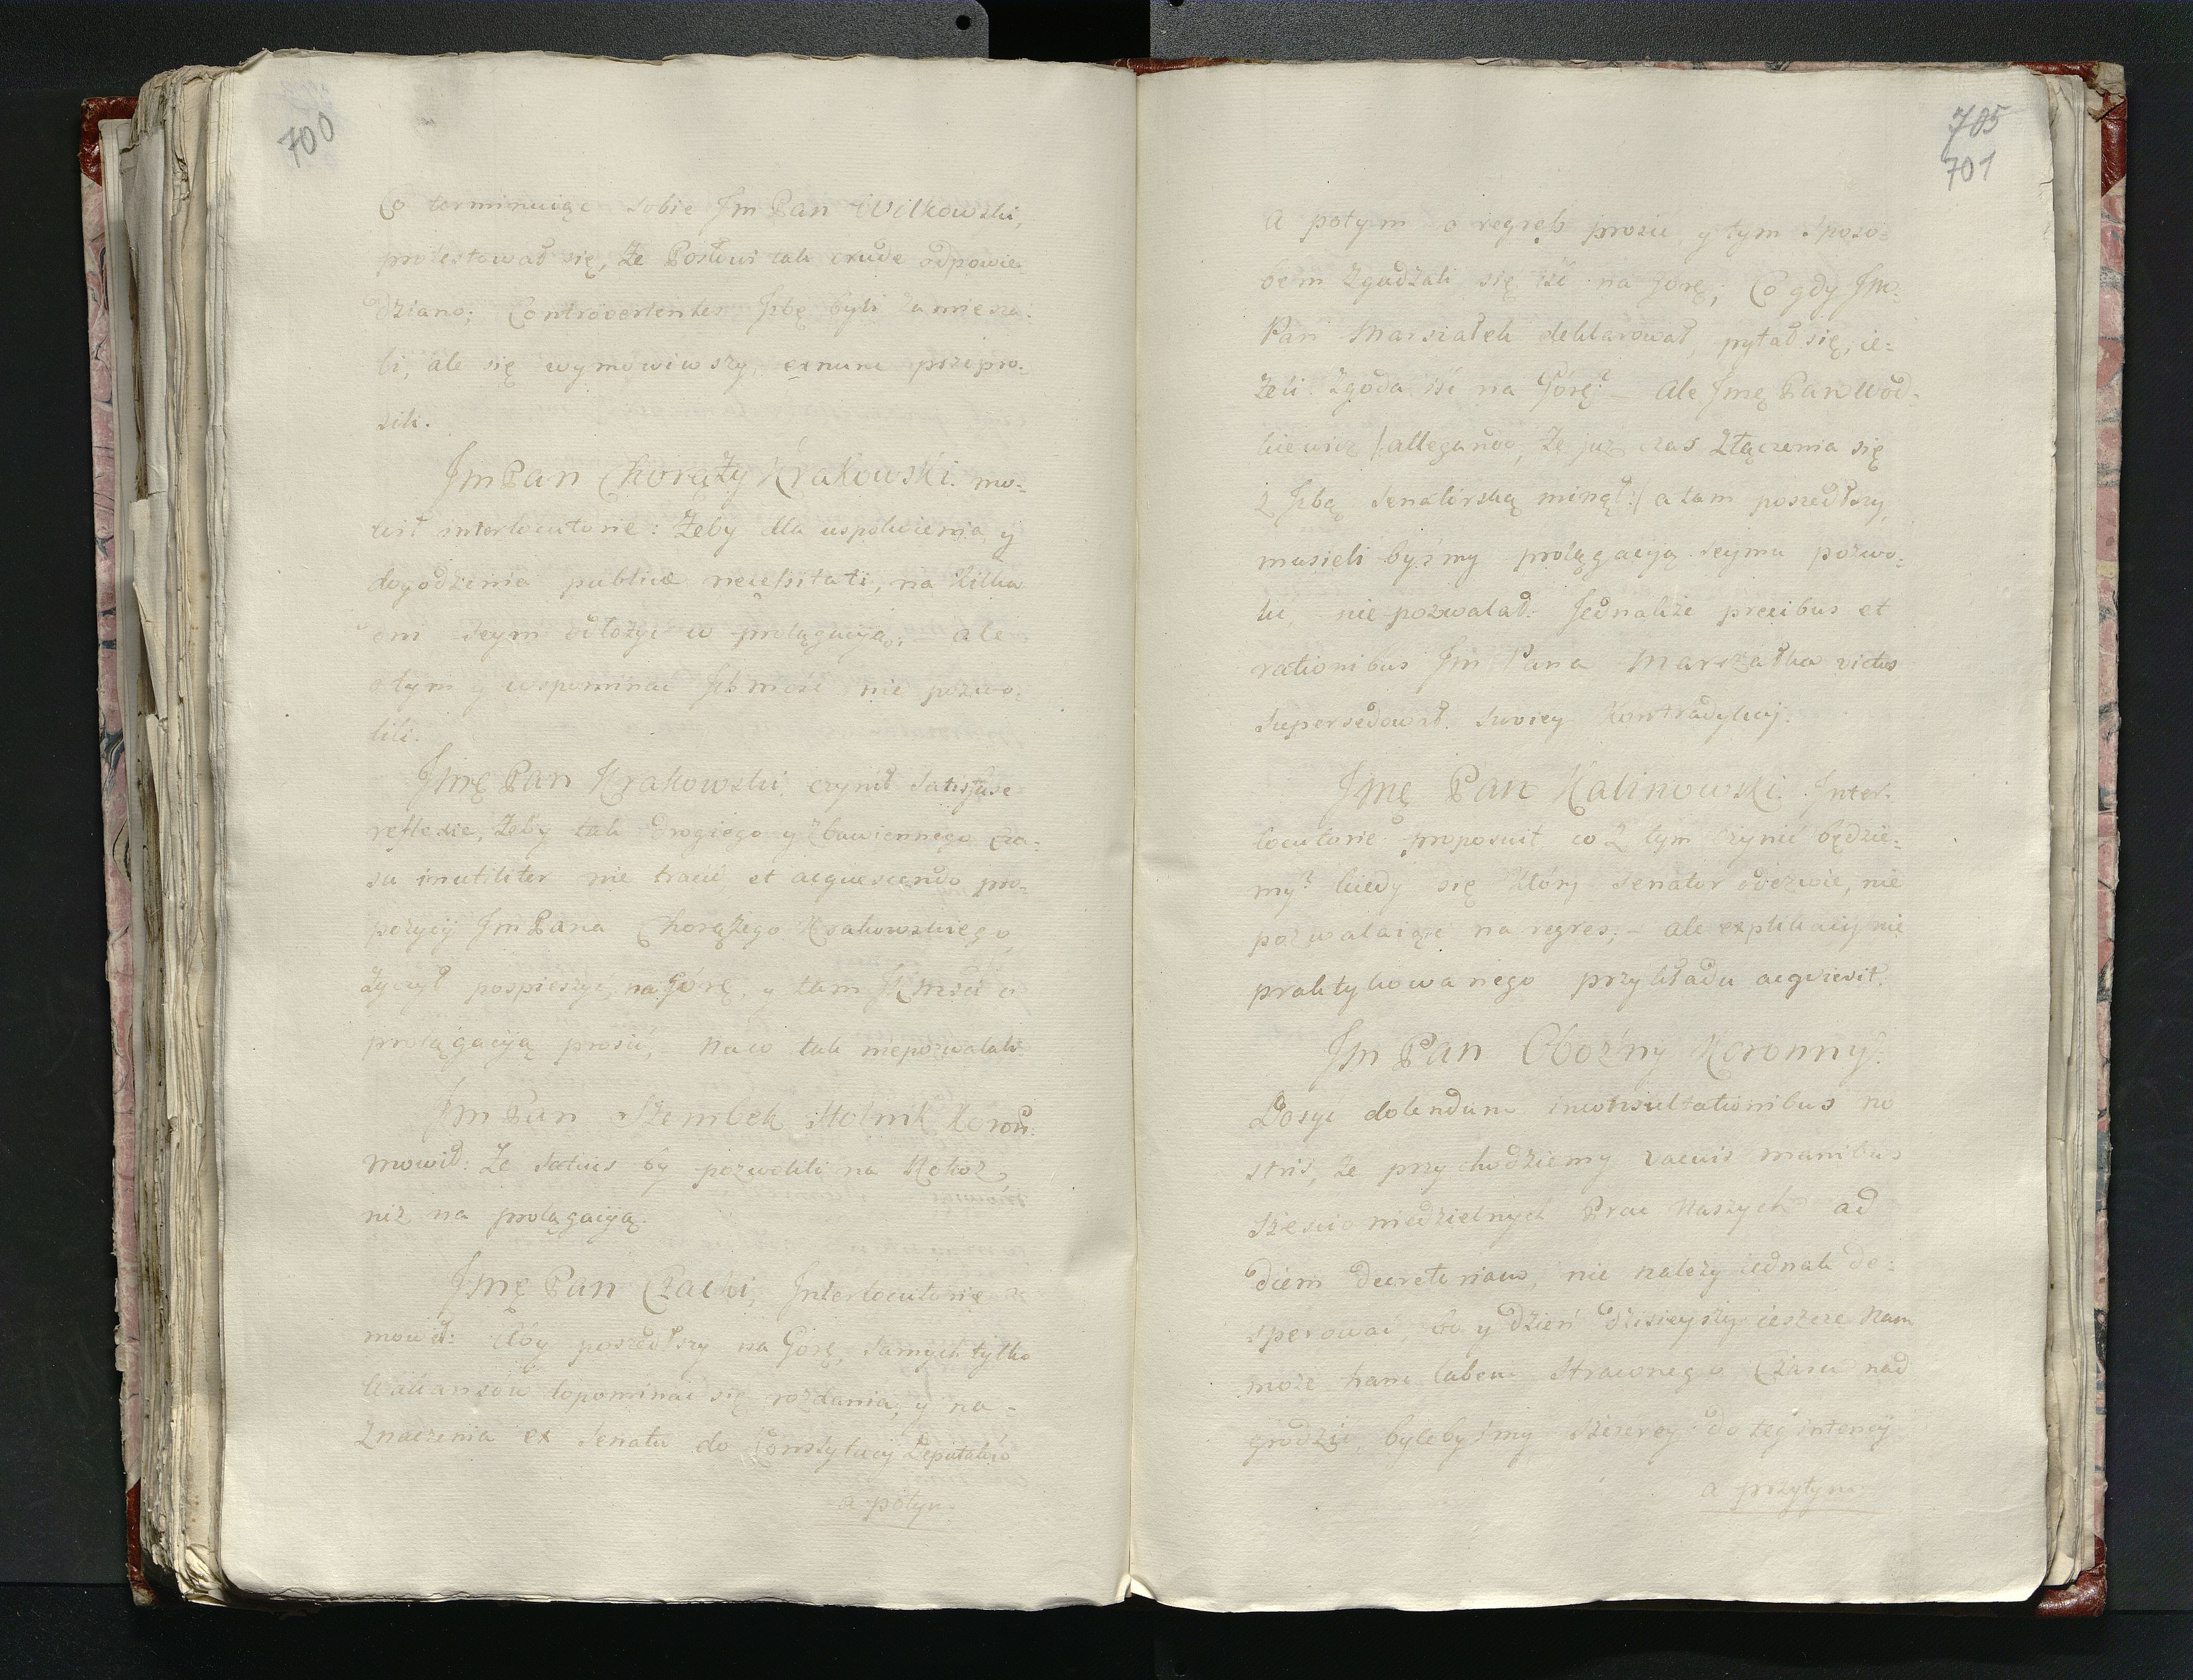 700
Co terminuiąc sobie Jm Pan Wilkowski,
protestował się, że Posłowi tak crude odpowie
dziano; Controvertentes Jzbę byli zamiesza-
li, ale się wymowiwszy, exnunc przepro-
sili.
Jm Pan Chorąży Krakowski. mo-
wił interlocutorie: Żeby dla uspokoienia y
dogodzenia publicæ necessitati, na kilka
dni Seym odłożyć w prolągacyą, ale
o tym y wspominać Jchmość nie pozwo-
lili.
Jmę Pan Krakowski, czynił Satisfuse
reflexie, żeby tak drogiego y zbawiennego cza-
su inutiliter nie tracić et acquiescendo pro-
pozycij Jm Pana Chorążego Krakowskiego,
życzył pospieszyć na Górę, y tam Jchmści o
prolągacyą prosić, na co tak niepozwalali
Jm Pan Szembek Stolnik Koron:
mowił: Że Satius by pozwolili na Rokosz
niż na prolągacyą.
Jmę Pan Czacki, Interlocutorie
mowił: Aby poszedłszy na Górę, Samych tylko
Wakansow dopominać się rozdania, y na-
znaczenia ex Senatu do Konstytucij Deputatów
a potym
705
701
a potym o regress prosić, y tym sposo-
bem zgadzali się iść na górę; Co gdy Jmo:
Pan Marszałek deklarował pytał się, ie-
żeli zgoda iść na Górę? – Ale Jmę Pan Wod-
kiewicz /:allegando, że już czas złączenia się
z Jzbą Senatorską minął:/ a tam poszedłszy,
musieli byśmy prolągacyą Seymu pozwo-
lić, nie pozwalał. Jednakże precibus et
rationibus Jm Pana Marszałka victus
supersedował swoiey Kontradykcij.
Jmę Pan Kalinowski. Inter-
locutorie proposuit co z tym czynić będzie-
my? kiedy się ktory Senator odezwie, nie
pozwalaiąc na regres; – ale explikacij nie
praktykowanego przykładu acquiesił.
Jm Pan Oboźny Koronny.
Dosyc dolendum inconsultationibus no
stris, że przychodziemy vacuis manibus
Sześcio niedzielnych Prac Naszych ad
diem decretoriam, nie należy iednak de-
sperować, bo y dzień dzisieyszy ieszcze Nam
może hanc labem straconego Czasu nad
grodzić, bylebyśmy szczerey do teg intencij
a przytym